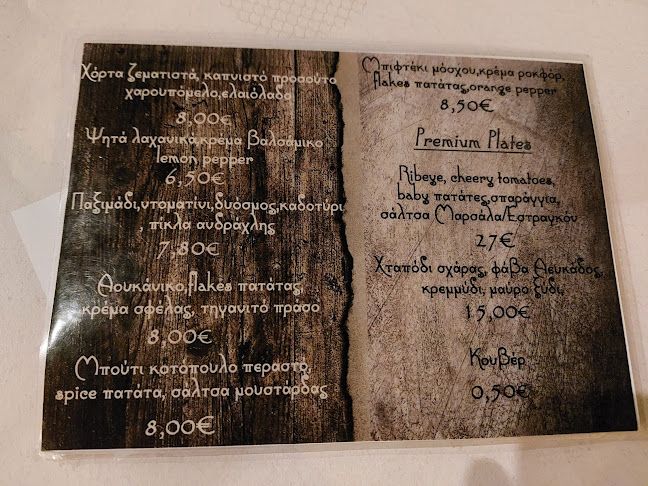 Χόρτα ζεματιστά, καπνιστό προσούτο
χαρουπόμελο,ελαιόλαδο
8,00€
Ψητά λαχανικά,κρέμα βαλσάμικο
lemon pepper
6,50€
Παξιμάδι,ντοματίνι,δυόσμος,καδοτύρι
, πίκλα ανδράχλης
7,80€
Λουκάνικο,flakes πατάτας,
κρέμα σφέλας, τηγανιτό πράσο
8,00€
Μπούτι κοτόπουλο περαστό,
spice πατάτα, σάλτσα μουστάρδας
8,00€
Μπιφτέκι μόσχου,κρέμα ροκφόρ,
flakes πατάτας,orange pepper
8,50€
Premium Plates
Ribeye, cheery tomatoes,
baby πατάτες,σπαράγγια,
σάλτσα Μαρσάλα/Εστραγκόν
27€
Χταπόδι σχάρας, φάβα Λευκάδος,
κρεμμύδι, μαυρο ξύδι,
15,00€
Κουβέρ
0,50€